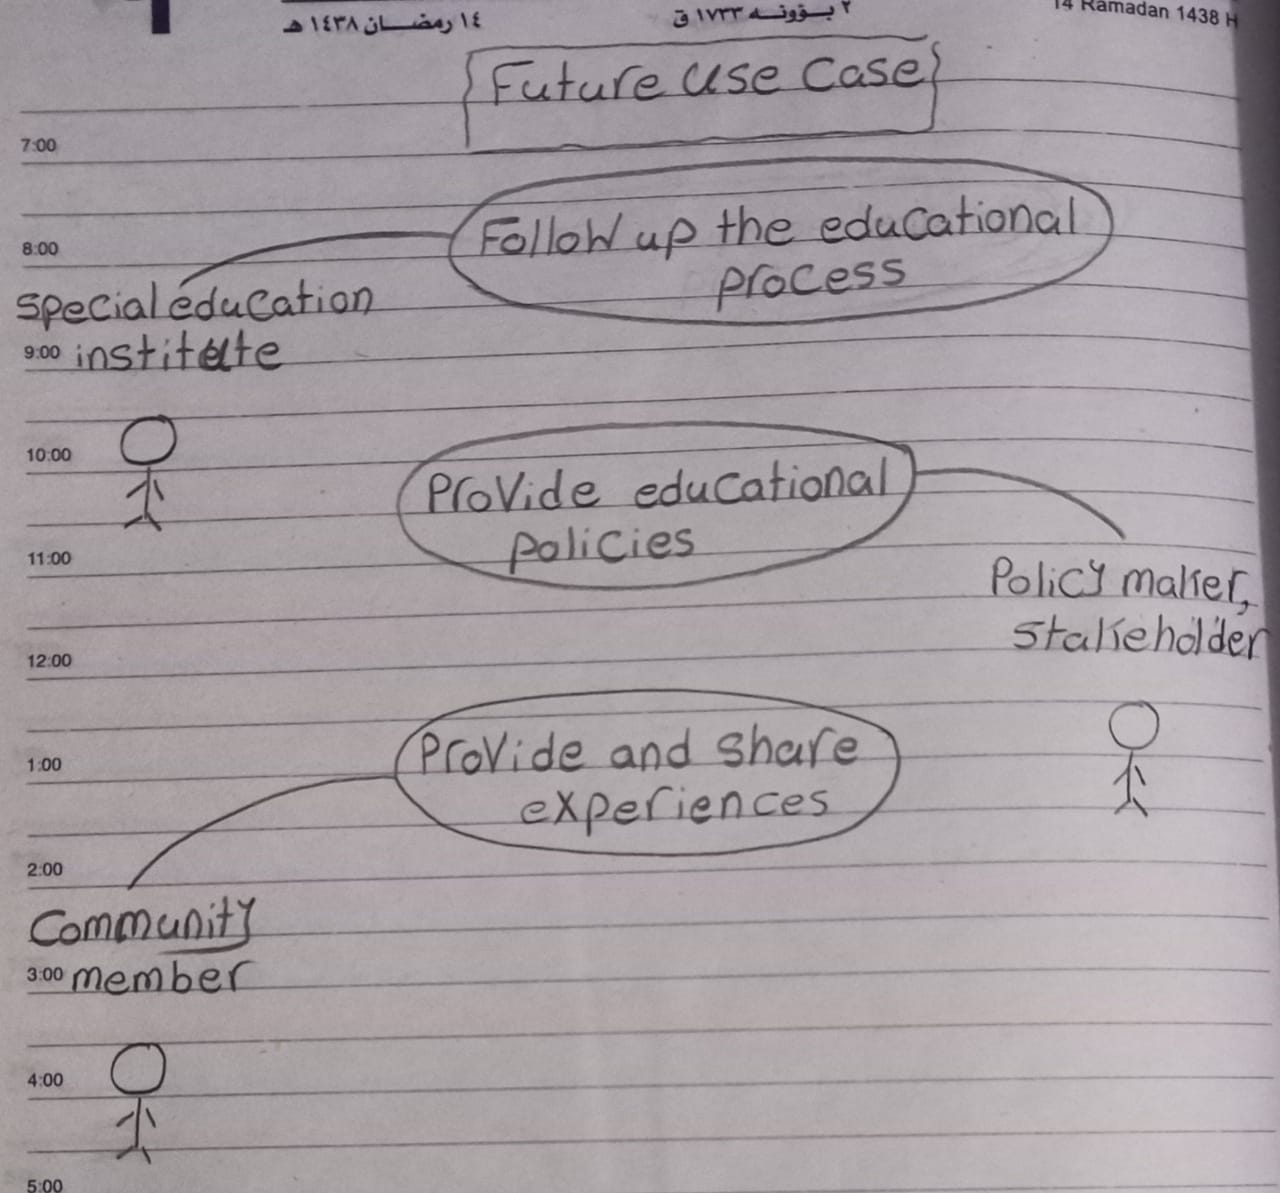 ١٤ رمضان ١٤٣٨ هـ
٢ بؤونه ١٧٣٣ ق
14 Ramadan 1438 H
Future use case
7:00
Follow up the educational
process
8:00
special education
9:00 institute
10:00
Provide educational
policies
11:00
Policy maker,
stakeholder
12:00
1:00
Provide and share
experiences
2:00
Community
3:00 member
4:00
5:00